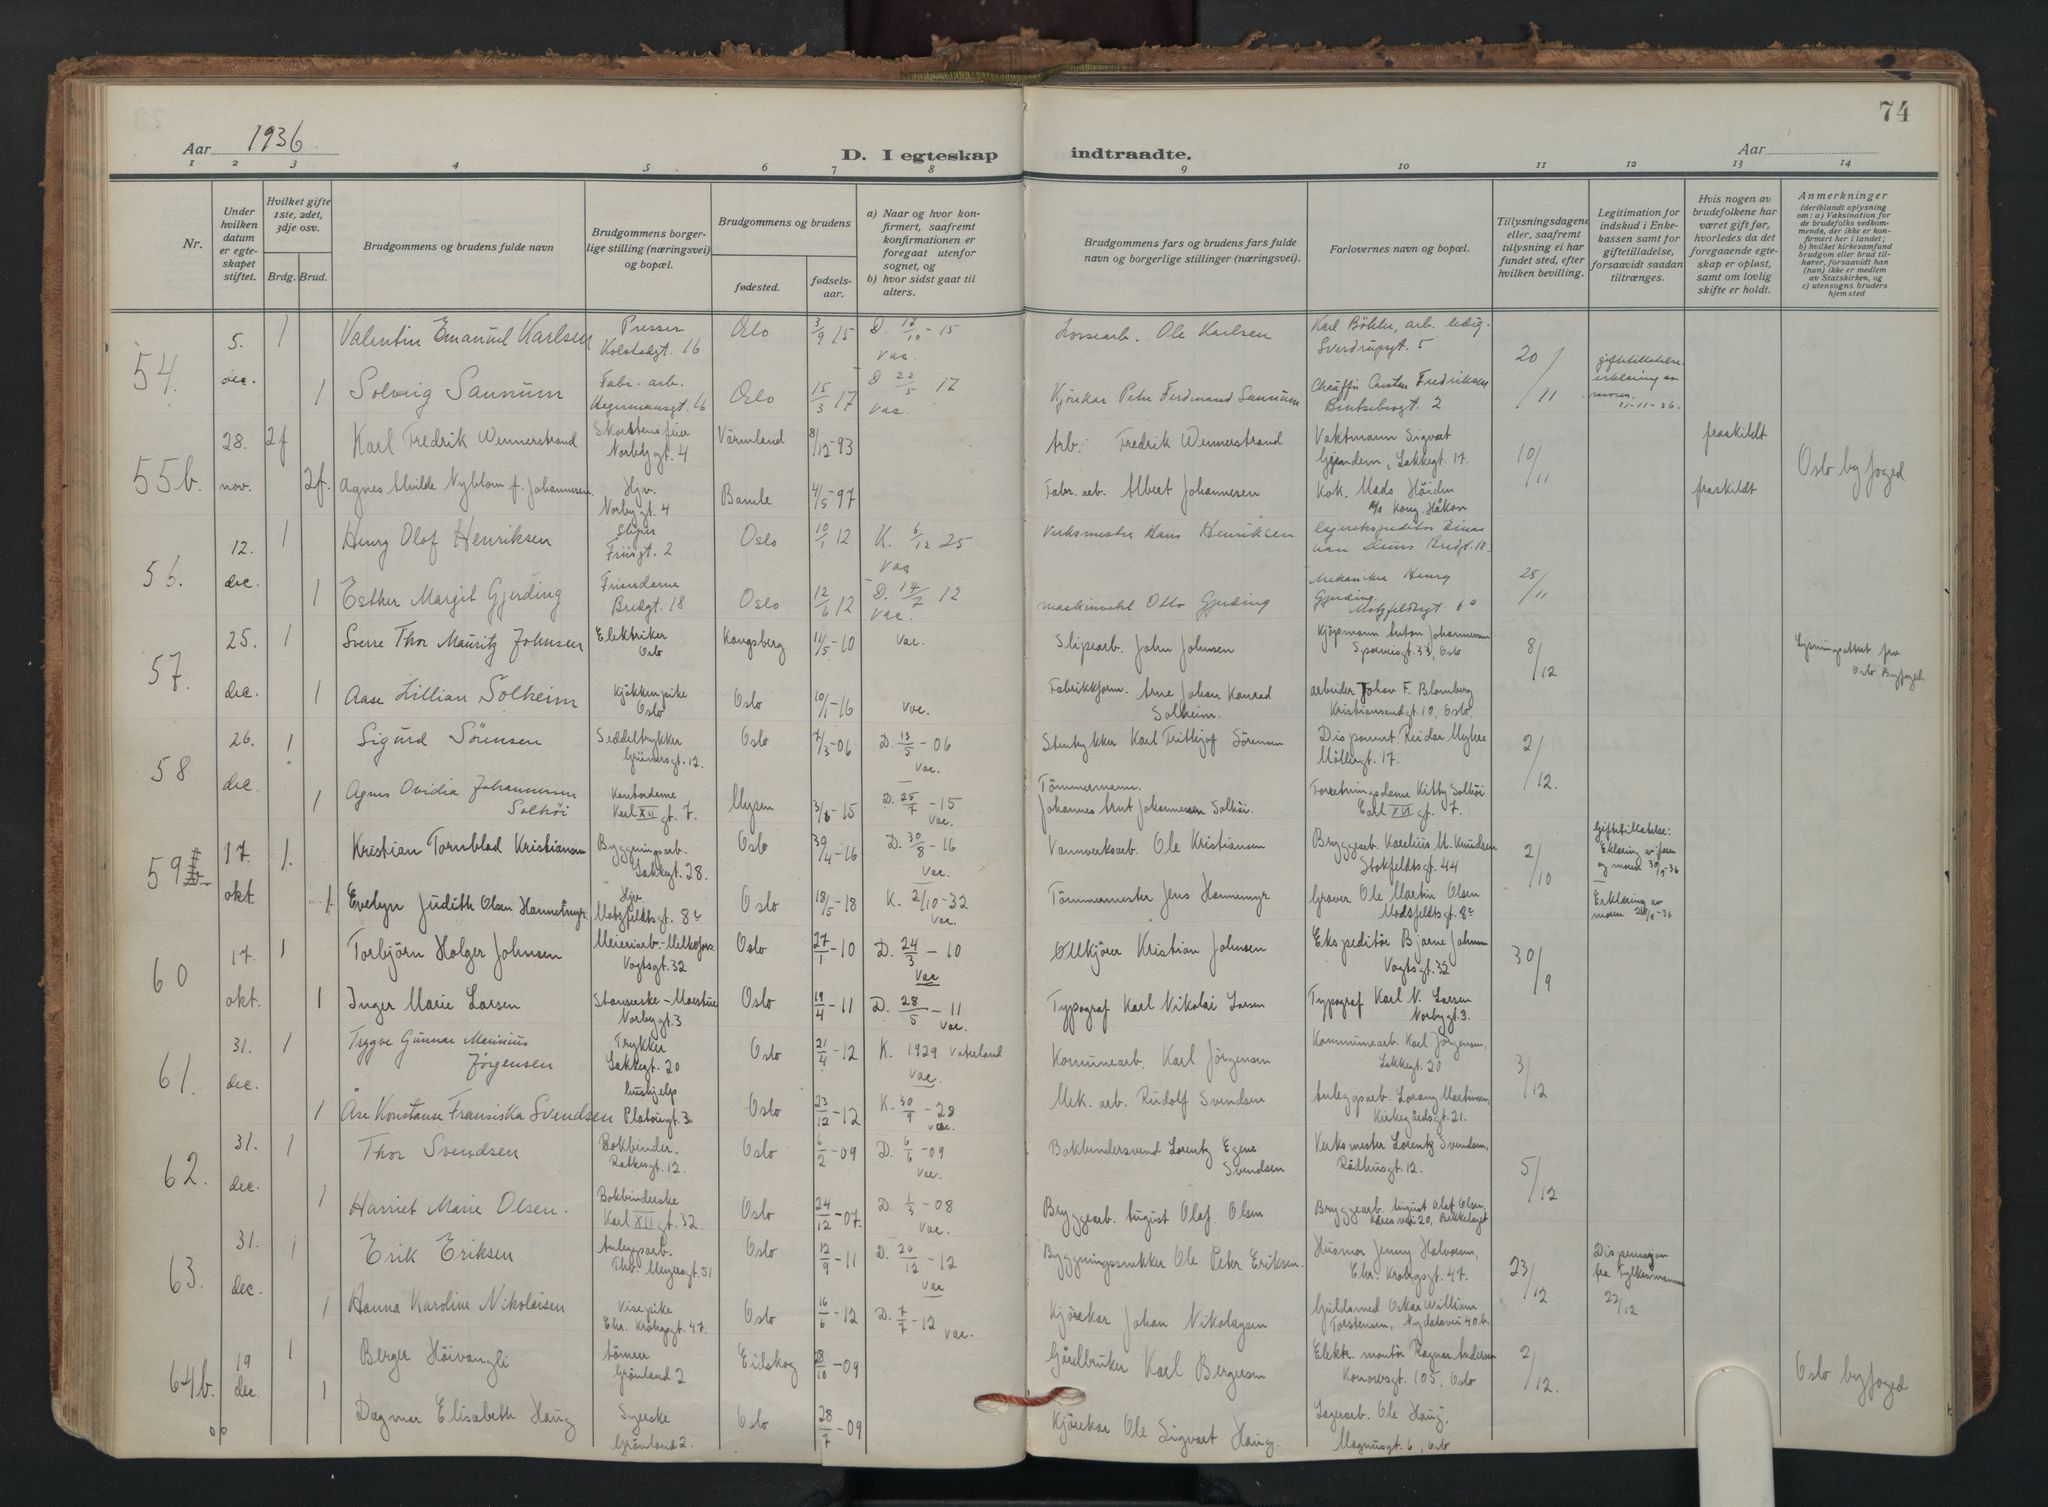 74
Aar 1936. D. I egteskap indtraadte. Aar
1 2 3 4 5 6 7 8 9 10 11 12 13 14
Nr.
Under hvilken datum er egteskapet stiftet.
Hvilket gifte 1ste, 2det, 3dje osv.
Brdg. Brud.
Brudgommens og brudens fulde navn
Brudgommens borgerlige stilling (næringsvei) og bopæl.
Brudgommens og brudens
fødested. fødselsaar.
a) Naar og hvor konfirmert, saafremt konfirmationen er foregaat utenfor sognet, og
b) hvor sidst gaat til alters.
Brudgommens fars og brudens fars fulde navn og borgerlige stillinger (næringsvei).
Forlovernes navn og bopæl.
Tillysningsdagene eller, saafremt tillysning ei har fundet sted, efter hvilken bevilling.
Legitimation for indskud i Enkekassen samt for giftetilladelse, forsaavidt saadan tiltrænges.
Hvis nogen av brudefolkene har været gift før, hvorledes da det foregaaende egteskap er opløst, samt om lovlig skifte er holdt.
Anmerkninger
(deriblandt oplysning om: a) Vaksination for de brudefolks vedkommende, der ikke er konfirmert her i landet; b) hvilket kirkesamfund brudgom eller brud tilhører, forsaavidt han (hun) ikke er medlem av Statskirken, og c) utensogns bruders hjemsted
54. 5. dec. 1 Valentin Emanuel Karlsen Presser Kolstadgt. 16 Oslo 3/9 15 D. 17/10 - 15 Vac. Lossearb. Ole Karlsen Karl Böhler, arb. ledig. Sverdrupsgt. 5 20/11
1 Solveig Sannum Fabr. arb. Hegermannsgt. 16 Oslo 15/3 17 D 22/5 17 Vac. Kjörekar Peter Ferdinand Sannum Fredriksen Bentsebrogt. 2 giftetillatelse erklæring av moren 11-11-36.
55b. 28. nov. 2f Karl Fredrik Wennerstrand Skorstensfeier Norbygt. 4 Värmland 8/12-93 Arb. Fredrik Wennerstrand Vaktmann Sigvat Gjendem, Lakkegt. 17. 10/11 fraskildt Oslo byfoged
2f. Agnes Alvilde Nyblom f. Johannesen Hjv. Norbygt. 4 Bamle 4/5-97 Fabr. arb. Albert Johannesen Kok. Mads Höiden M/s Kong Håkon fraskildt
56. 12. dec. 1 Henry Olof Henriksen Sliper Friisgt. 2 Oslo 10/1 12 K. 6/12 25 Vac Verksmester Hans Henriksen Bredgt. 18 25/11
1 Esther Margit Gjerding Frisördame Bredgt. 18 Oslo 12/6 12 D. 14/7 12 Vac. Otto Gjerding Mekaniker Henry Gjerding. Motzfeldtsgt. 6
57. 25. dec. 1 Sverre Thor Mauritz Johnsen Elektriker Oslo Kongsberg 11/5-10 Vac. Slipearb. John Johnsen Kjöpmann Anton Johannessen Sporveisgt. 33, Oslo 8/12 Lysningsattest fra Oslo Byfoged
1 Aase Lillian Solheim Kjökkenpike Oslo Oslo 10/1-16 Vac. Fabrikkform. Arne Johan Konrad Solheim. arbeider Johan F. Blomberg Kristiansandgt. 10, Oslo.
58 26. dec 1 Sigurd Sörensen Seddeltrykker Grünersgt. 12. Oslo 7/3-06 D. 13/5-06 Vac. Stentrykker Karl Frithjof Sörensen Disponent Reidar Myhre Möllergt. 17. 2/12.
1 Agnes Ovidia Johannessen Solhöi Kontordame Karl XII gt. 7. Mysen 3/6-15 D. 25/7-15 Vac. Tömmermann. Johannes Arnt Johannessen Solhöi. Forretningsdame Kitty Solhöi Carl XII gt. 7.
59 17. okt 1. Kristian Tornblad Kristiansen Byggningsarb. Lakkegt. 28. Oslo 30/4-16 D. 30/8-16 Vac. Vannverksarb. Ole Kristiansen Bryggearb. Karelius M. Knudsen Stokfeldtsgt. 44 2/10 Giftetillatelse: Erklæring av faren og moren 30/9-36
1 Evelyn Judith Olsen Hannemyr. Hjv. Motzfeldtsgt. 8c Oslo 18/5-18 K. 2/10-32 Vac. Tömmermester Jens Hannemyr Graver Ole Martin Olsen Modsfeldtsgt. 8c Erklæring av moren 24/9-36
60 17. okt. 1 Torbjörn Holger Johnsen Meieriarb. - Melkefors. Vogtsgt. 32 Oslo 27/1-10 D. 24/3-10 Vac Ölkjörer Kristian Johnsen Ekspeditör Bjarne Johnsen Vogtsgt. 32 30/9
1 Inger Marie Larsen Stanserske - Norbygt. 3 Oslo 19/4-11 D. 28/5-11 Vac. Typograf Karl Nikolai Larsen Typograf Karl N. Larsen Norbygt. 3.
61. 31. dec. 1 Trygve Gunnar Marinius Jørgensen Trykker Lakkegt. 20 Oslo 21/4-12 K. 1929 Vaterland Vac. Komunearb. Karl Jörgensen Kommunearb. Karl Jörgensen, Lakkegt. 20 3/12
1 Åse Konstanse Fransiska Svendsen hushjelp Platousgt. 3 Oslo 23/12-12 K. 30/9-28 Vac. Mek. arb. Rudolf Svendsen Anleggsarb. Lorang Martinsen, Kirkegårdsgt. 21.
62. 31. dec. 1 Thor Svendsen Bokbinder. Ratkesgt. 12. Oslo 6/2-09 D. 6/6-09 Vac. Bokbindersvend Lorentz Egene Svendsen Verksmester Lorentz Svendsen, Rådhusgt. 12. 5/12
1 Harriet Marie Olsen. Bokbinderske Karl XII gt. 32. Oslo 24/12-07. D. 1/3-08 Vac. Bryggearb. August Olaf Olsen Bryggearb. August Olaf Olsen, 20, Bekkelaget
63. 31. dec. 1 Erik Eriksen Anleggsarb. Thv. Meyersgt. 51 Oslo 12/9-11 D. 26/12-12 Vac Byggningssnekker Ole Peter Eriksen. Husmor Jenny Halvorsen, Chr. Krohgsgt. 47. 23/12 Dispensasjon fra Fylkesmannen 22/12
1 Hanna Karoline Nikolaisen Visepike Chr. Krohgsgt. 47. Oslo 16/6-12 D. 7/7-12 Vac. Kjörekar Johan Nikolaysen Guldsmed Oskar William Torstensen, Nydalsvei 40.b.
64b. 19 dec. 1 Berger Höivangli tömrer Grönland 2 Eidskog 28/10-09 Gårdbruker Karl Bergersen Elektr. montör Ragnar Andersen Konowsgt. 105, Oslo 2/12. Oslo byfoged
1 Dagmar Elisabeth Haug Syerske Grönland 2. Oslo 28/7-09 Kjörekar Ole Sigvart Haug. Lagerarb. Ole Haug. Magnusgt. 6, Oslo